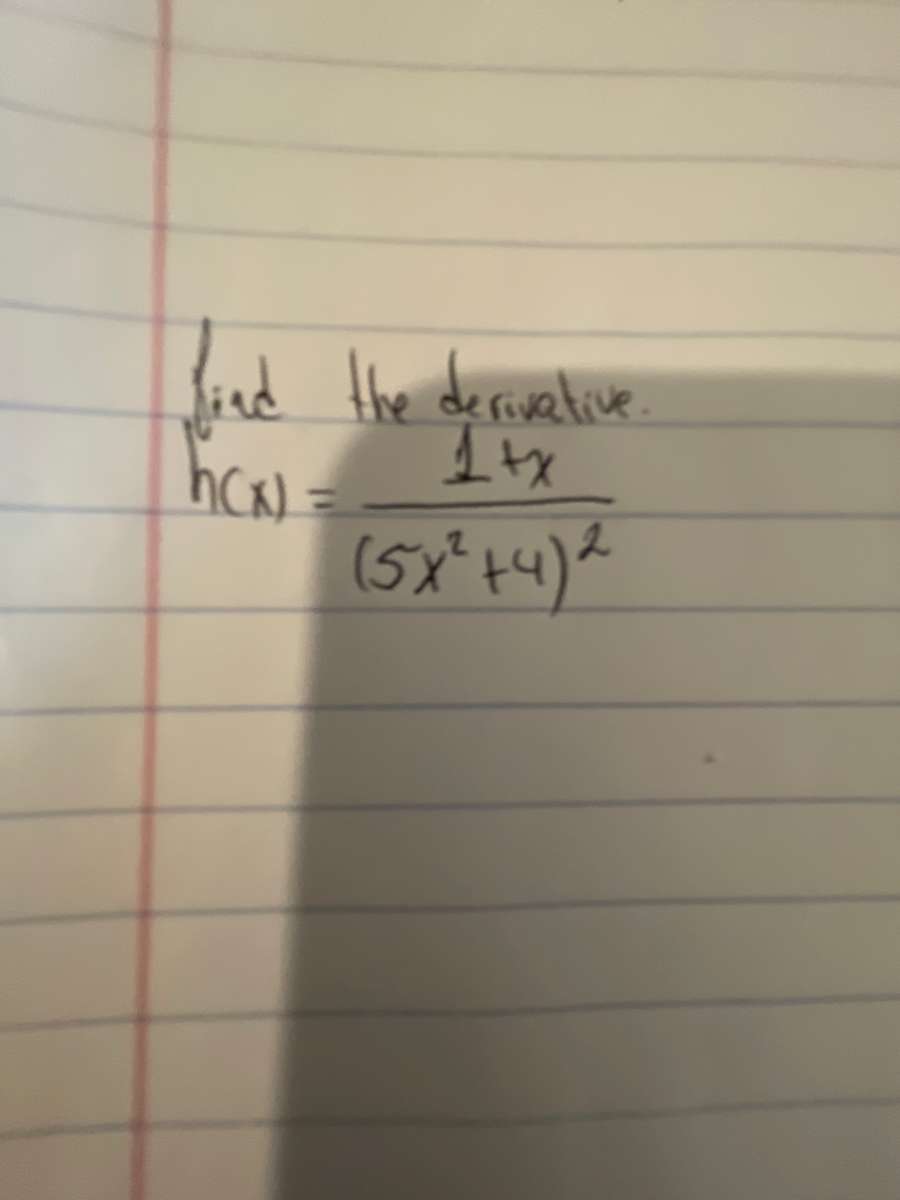 find the derivative.
h(x) = 1+x / (5x²+4)²